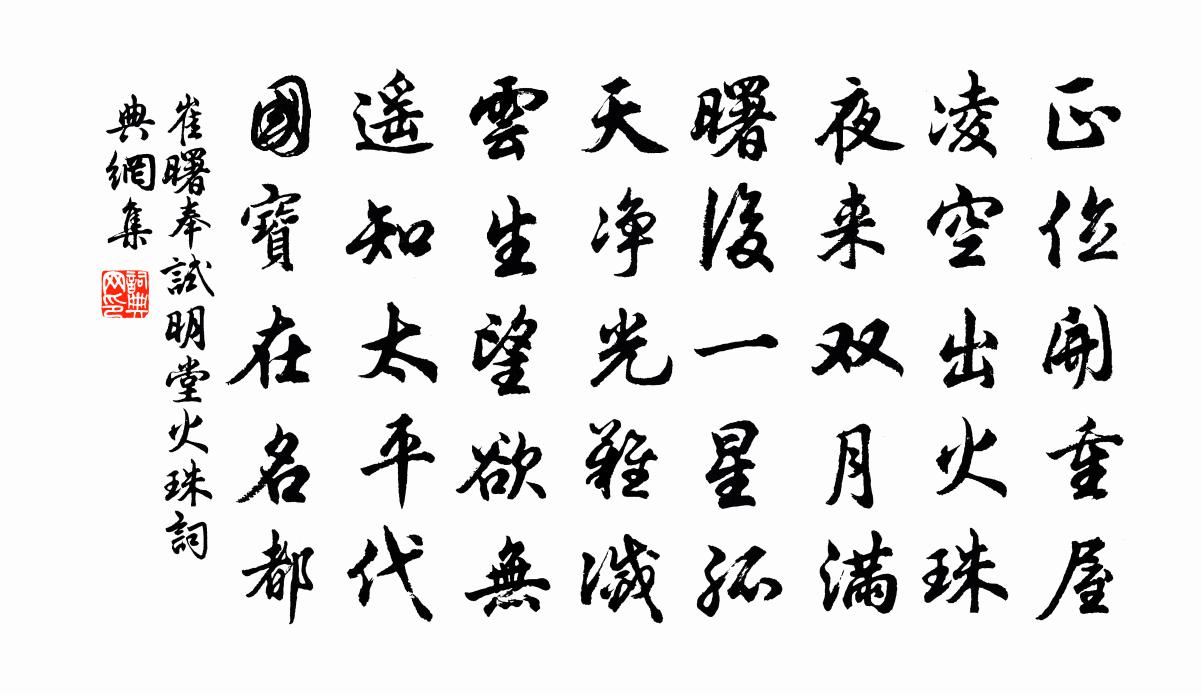 正位開重屋
凌空出火珠
夜来双月满
曙後一星孤
天净光難滅
雲生望欲無
遥知太平代
國寶在名都
崔曙奉試明堂火珠詞
典網集
詞典
网印